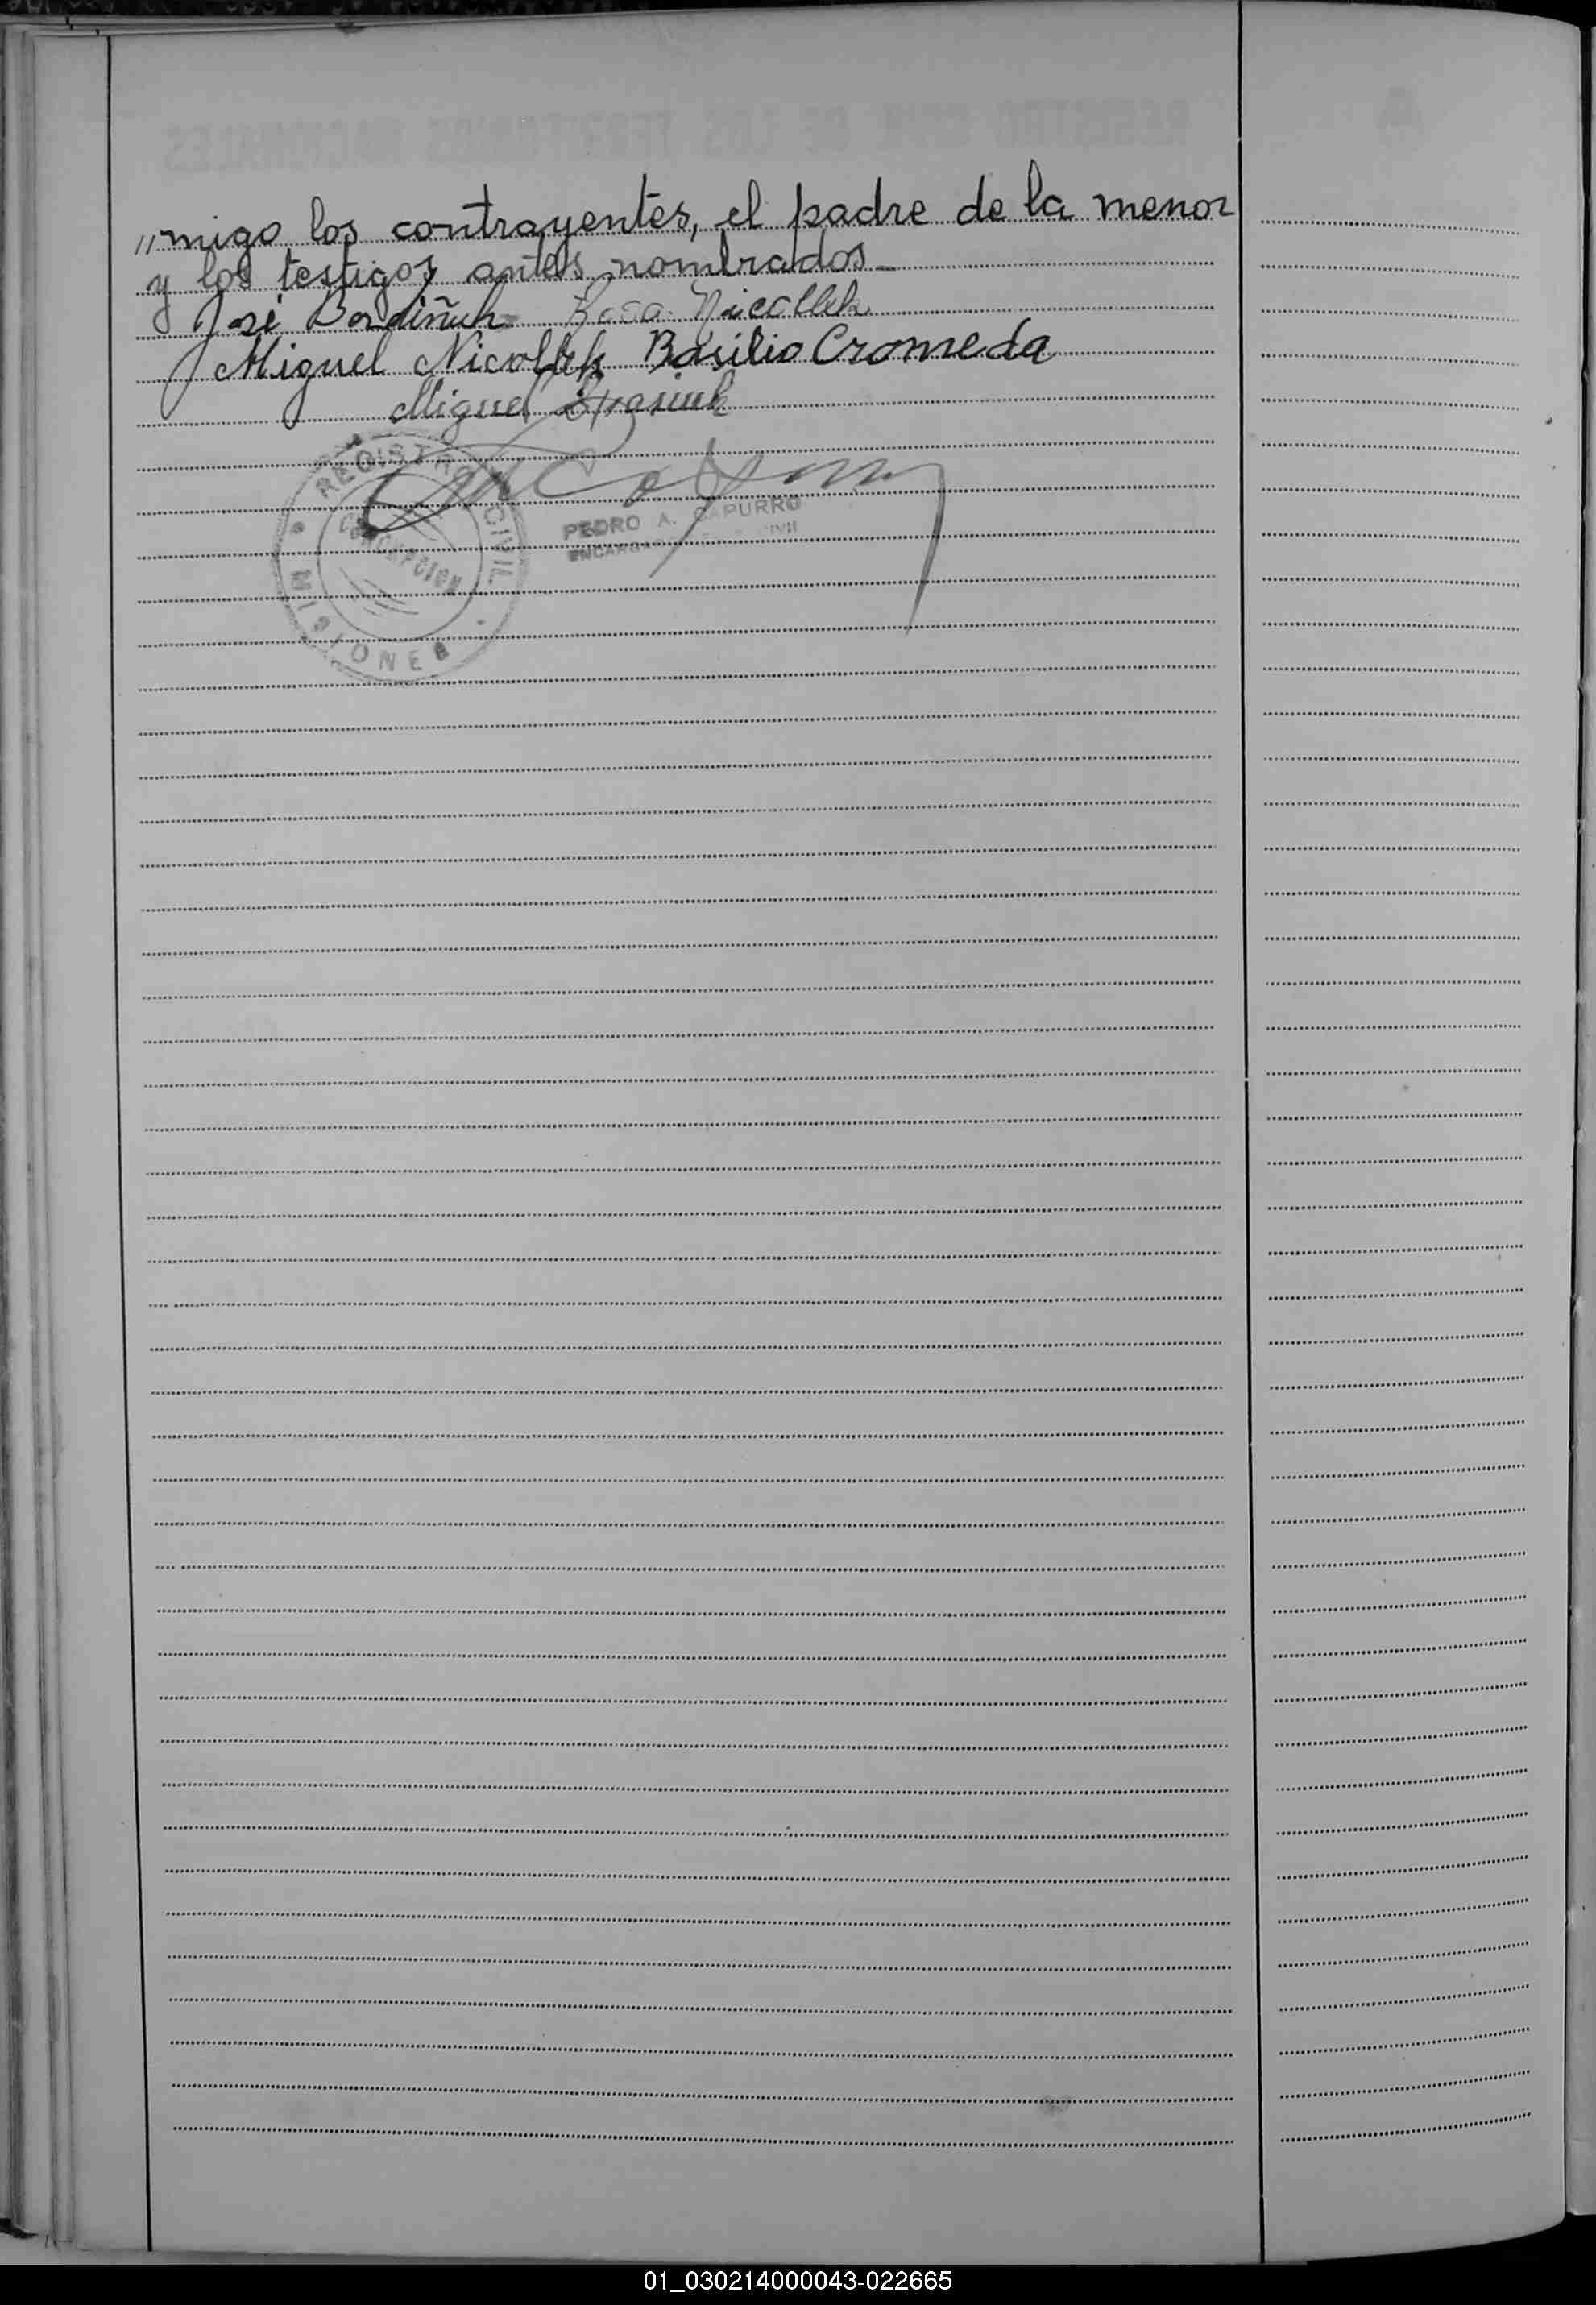 „migo los contrayentes, el padre de la menor
y los testigos antes nombrados_
José Bordiñuk Rosa Nicollek
Miguel Nicollek Basilio Cromeda
Miguel
REGISTRO CIVIL
CONCEPCION
MISIONES
PEDRO A. CAPURRO
01_030214000043-022665